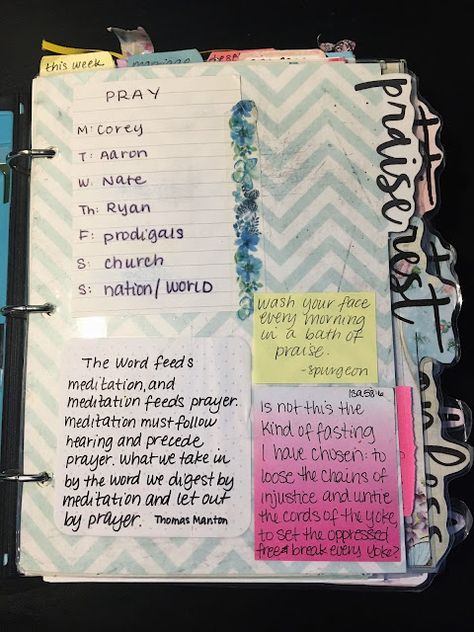 this week
marriage
PRAY
M: Corey
T: Aaron
W: Nate
Th: Ryan
F: prodigals
S: church
S: nation/world
The Word feeds
meditation, and
meditation feeds prayer.
Meditation must follow
hearing and precede
prayer. What we take in
by the word we digest by
meditation and let out
by prayer. Thomas Manton
wash your face
every morning
in a bath of
praise.
-Spurgeon
Isa 58:6
Is not this the
kind of fasting
I have chosen: to
loose the chains of
injustice and untie
the cords of the yoke,
to set the oppressed
free & break every yoke?
praise
rest